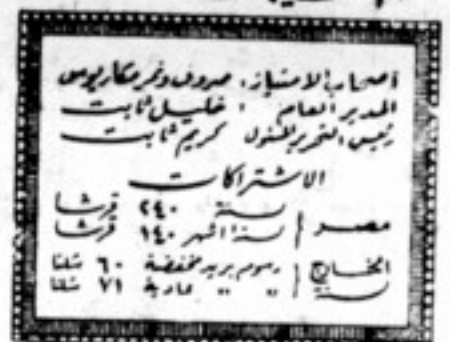 أصحاب الامتياز : صروف ونمر ومكاريوس
المدير العام : خليل ثابت
رئيس التحرير المسئول كريم ثابت
الاشتراكات
مصر سنة ٢٤٠ قرشا
ستة اشهر ١٤٠ قرشا
الخارج رسوم بريد مخفضة ٦٠ شلنا
سنة " " عادية ٧١ شلنا